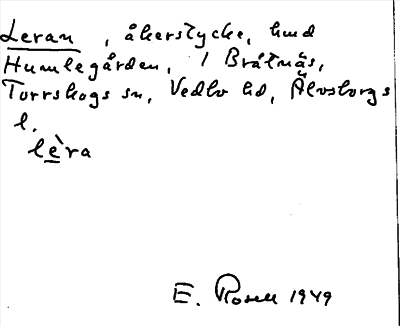 Leran, åkerstycke, hmd
Humlegården, 1 Bråtnäs,
Torrskogs sn, Vedbo hd, Älvsborgs
l.
lèra
E. Rosell 1949